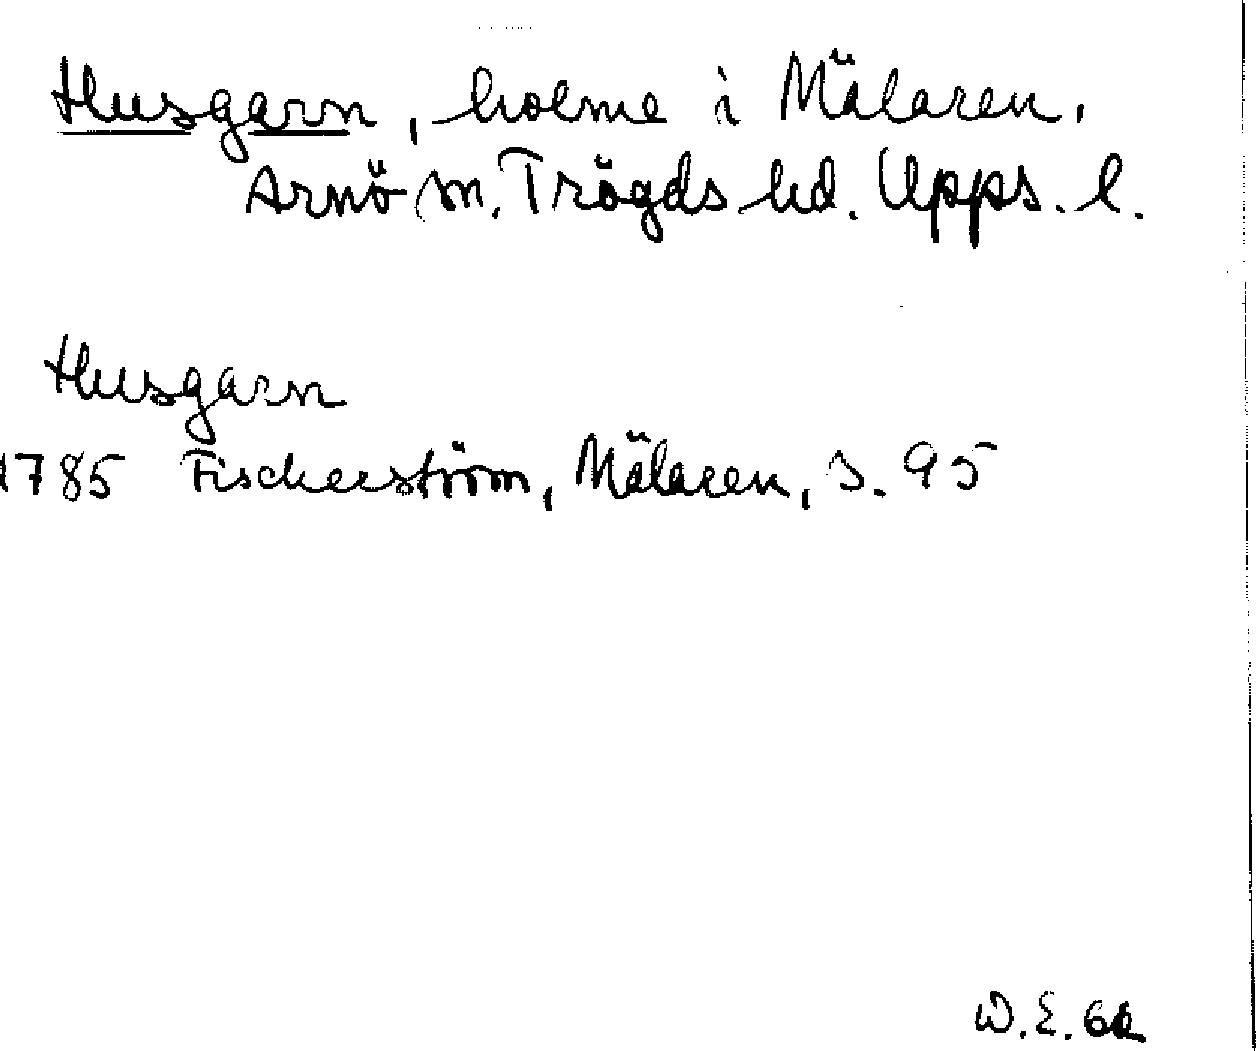 Husgarn, holme i Mälaren.
Arnö sn. Trögds hd. Upps. l.
Husgarn
1785 Fischerström, Mälaren, s. 95
W. E. 62